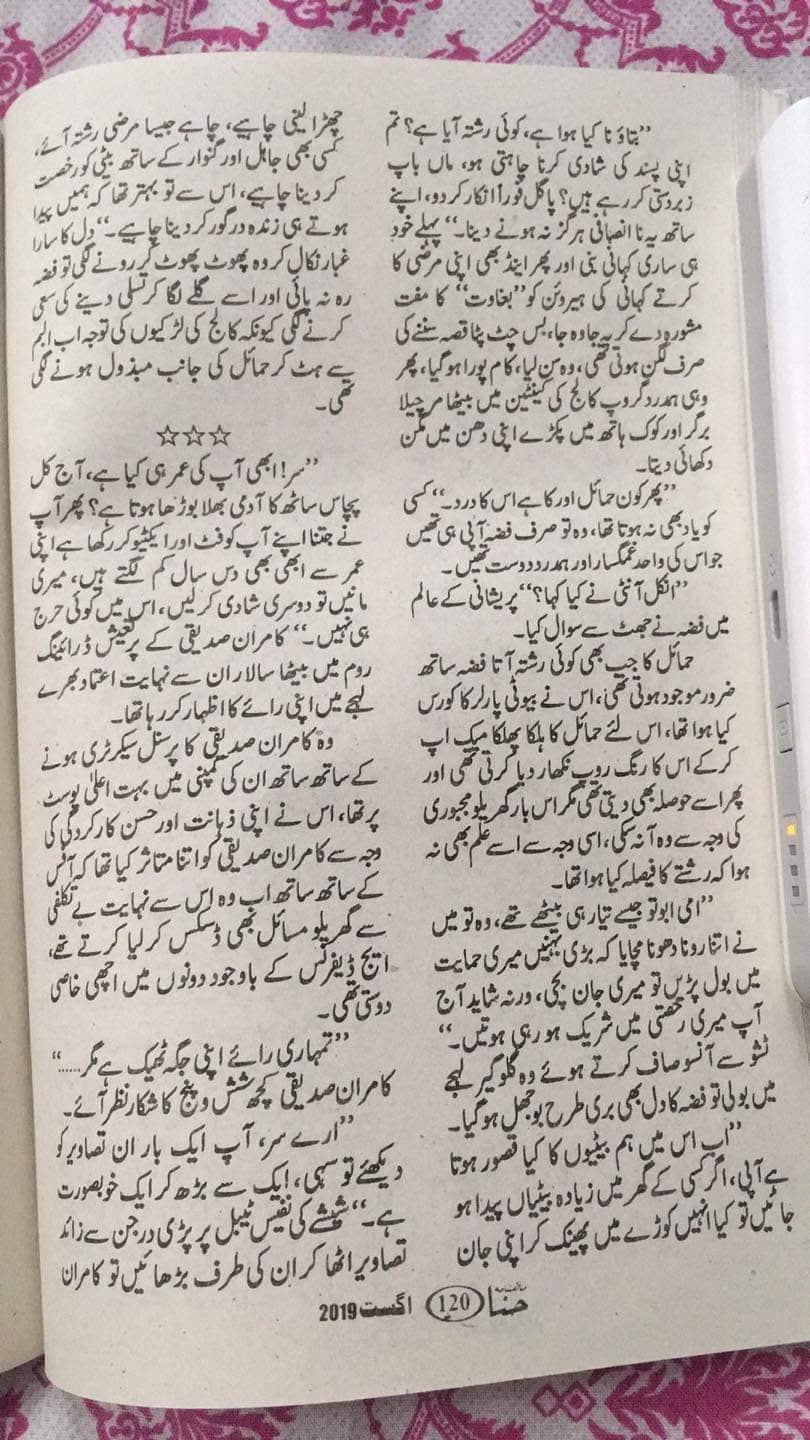 ”بتاؤ نا کیا ہوا ہے، کوئی رشتہ آیا ہے؟ تم
اپنی پسند کی شادی کرنا چاہتی ہو، ماں باپ
زبردستی کر رہے ہیں؟ پاگل فوراً انکار کر دو، اپنے
ساتھ یہ نا انصافی ہرگز نہ ہونے دینا۔“ پہلے خود
ہی ساری کہانی بنی اور پھر اینڈ بھی اپنی مرضی کا
کرتے کہانی کی ہیروئن کو ”بغاوت“ کا مفت
مشورہ دے کر یہ جا وہ جا، بس چٹ پٹا قصہ سننے کی
صرف لگن ہوتی تھی، وہ سن لیا، کام پورا ہو گیا، پھر
وہی ہمدرد گروپ کالج کی کینٹین میں بیٹھا مرچیلا
برگر اور کوک ہاتھ میں پکڑے اپنی دھن میں مگن
دکھائی دیتا۔
”پھر کون حمائل اور کا ہے اس کا درد۔“ کسی
کو یاد بھی نہ ہوتا تھا، وہ تو صرف فضہ آپی ہی تھیں
جو اس کی واحد غمگسار اور ہمدرد دوست تھیں۔
”انکل آنٹی نے کیا کہا؟“ پریشانی کے عالم
میں فضہ نے جھٹ سے سوال کیا۔
حمائل کا جب بھی کوئی رشتہ آتا فضہ ساتھ
ضرور موجود ہوتی تھی، اس نے بیوٹی پارلر کا کورس
کیا ہوا تھا، اس لئے حمائل کا ہلکا پھلکا میک اپ
کر کے اس کا رنگ روپ نکھار دیا کرتی تھی اور
پھر اسے حوصلہ بھی دیتی تھی مگر اس بار گھریلو مجبوری
کی وجہ سے وہ آ نہ سکی، اسی وجہ سے اسے علم بھی نہ
ہوا کہ رشتے کا فیصلہ کیا ہوا تھا۔
”امی ابو تو جیسے تیار ہی بیٹھے تھے، وہ تو میں
نے اتنا رونا دھونا مچایا کہ بڑی بہنیں میری حمایت
میں بول پڑیں تو میری جان بچی، ورنہ شاید آج
آپ میری رخصتی میں شریک ہو رہی ہوتیں۔“
ٹشو سے آنسو صاف کرتے ہوئے وہ گلوگیر لہجے
میں بولی تو فضہ کا دل بھی بری طرح بوجھل ہو گیا۔
”اب اس میں ہم بیٹیوں کا کیا قصور ہوتا
ہے آپی، اگر کسی کے گھر میں زیادہ بیٹیاں پیدا ہو
جائیں تو کیا انہیں کوڑے میں پھینک کر اپنی جان
چھڑا لینی چاہیے، چاہے جیسا مرضی رشتہ آئے،
کسی بھی جاہل اور گنوار کے ساتھ بیٹی کو رخصت
کر دینا چاہیے، اس سے تو بہتر تھا کہ ہمیں پیدا
ہوتے ہی زندہ درگور کر دینا چاہیے۔“ دل کا سارا
غبار نکال کر وہ پھوٹ پھوٹ کر رونے لگی تو فضہ
رہ نہ پائی اور اسے گلے لگا کر تسلی دینے کی سعی
کرنے لگی کیونکہ کالج کی لڑکیوں کی توجہ اب البم
سے ہٹ کر حمائل کی جانب مبذول ہونے لگی
تھی۔
☆☆☆
”سر! ابھی آپ کی عمر ہی کیا ہے، آج کل
پچاس ساٹھ کا آدمی بھلا بوڑھا ہوتا ہے؟ پھر آپ
نے جتنا اپنے آپ کو فٹ اور ایکٹو کر رکھا ہے اپنی
عمر سے ابھی بھی دس سال کم لگتے ہیں، میری
مانیں تو دوسری شادی کر لیں، اس میں کوئی حرج
ہی نہیں۔“ کامران صدیقی کے پرتعیش ڈرائینگ
روم میں بیٹھا سالار ان سے نہایت اعتماد بھرے
لہجے میں اپنی رائے کا اظہار کر رہا تھا۔
وہ کامران صدیقی کا پرسنل سیکرٹری ہونے
کے ساتھ ساتھ ان کی کمپنی میں بہت اعلیٰ پوسٹ
پر تھا، اس نے اپنی ذہانت اور حسن کارکردگی کی
وجہ سے کامران صدیقی کو اتنا متاثر کیا تھا کہ آفس
کے ساتھ ساتھ اب وہ اس سے نہایت بے تکلفی
سے گھریلو مسائل بھی ڈسکس کر لیا کرتے تھے،
ایج ڈیفرنس کے باوجود دونوں میں اچھی خاصی
دوستی تھی۔
”تمہاری رائے اپنی جگہ ٹھیک ہے مگر.....“
کامران صدیقی کچھ شش و پنج کا شکار نظر آئے۔
”ارے سر، آپ ایک بار ان تصاویر کو
دیکھئے تو سہی، ایک سے بڑھ کر ایک خوبصورت
ہے۔“ شیشے کی نفیس ٹیبل پر پڑی درجن سے زائد
تصاویر اٹھا کر ان کی طرف بڑھائیں تو کامران
ماہنامہ حنا 120 اگست 2019